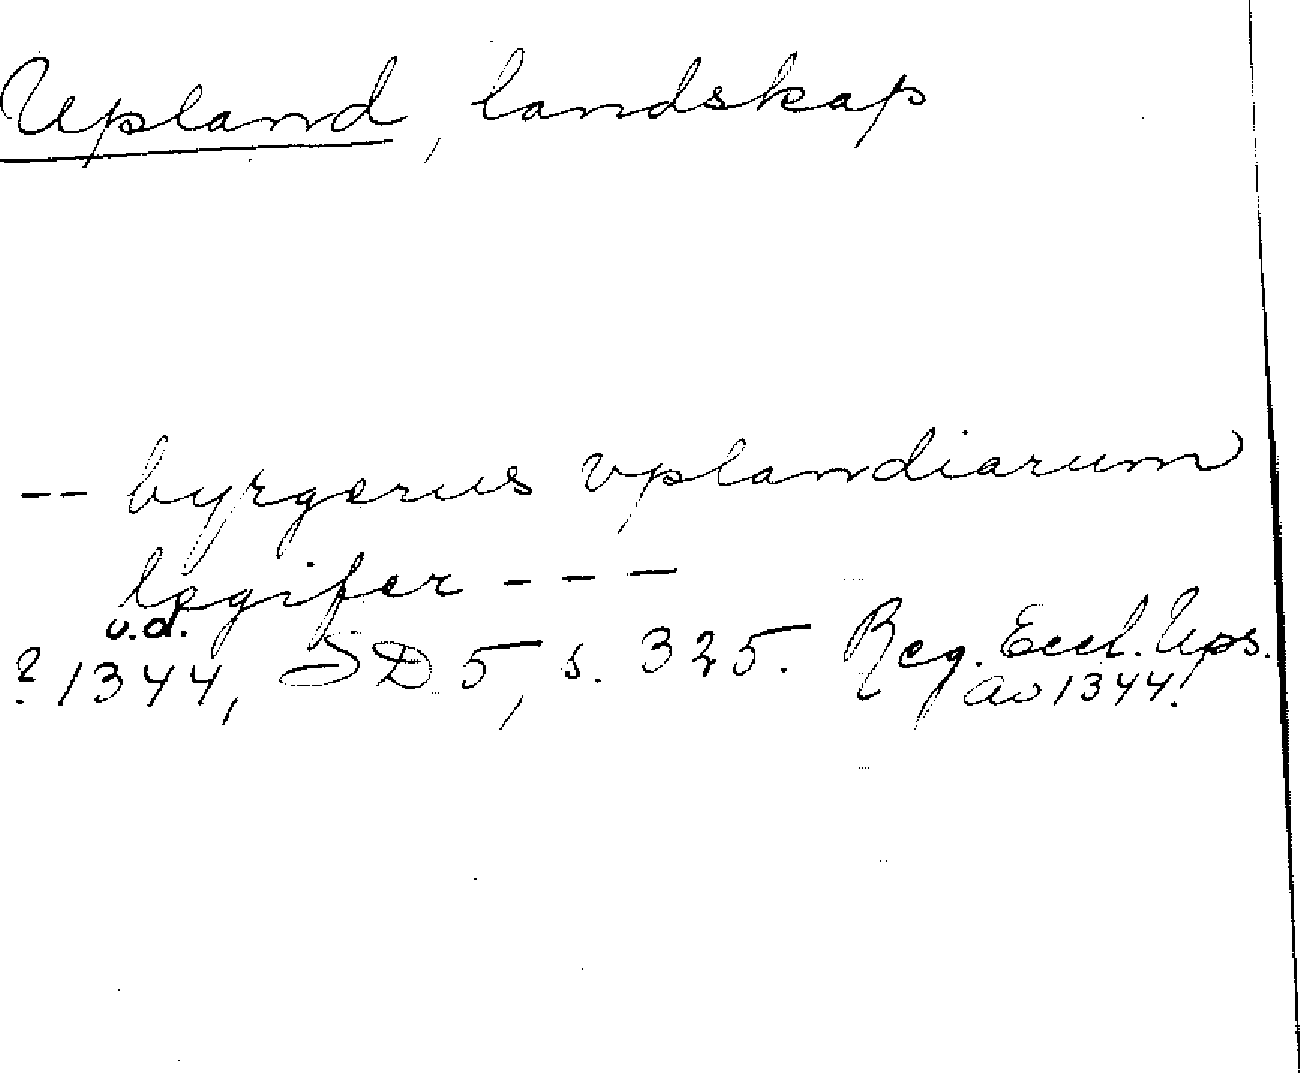 Upland, landskap
-- byrgerus vplandiarum
legifer - - -
u.d.
? 1344, SD 5, s. 325. Reg. Eccl. Ups.
av 1344.